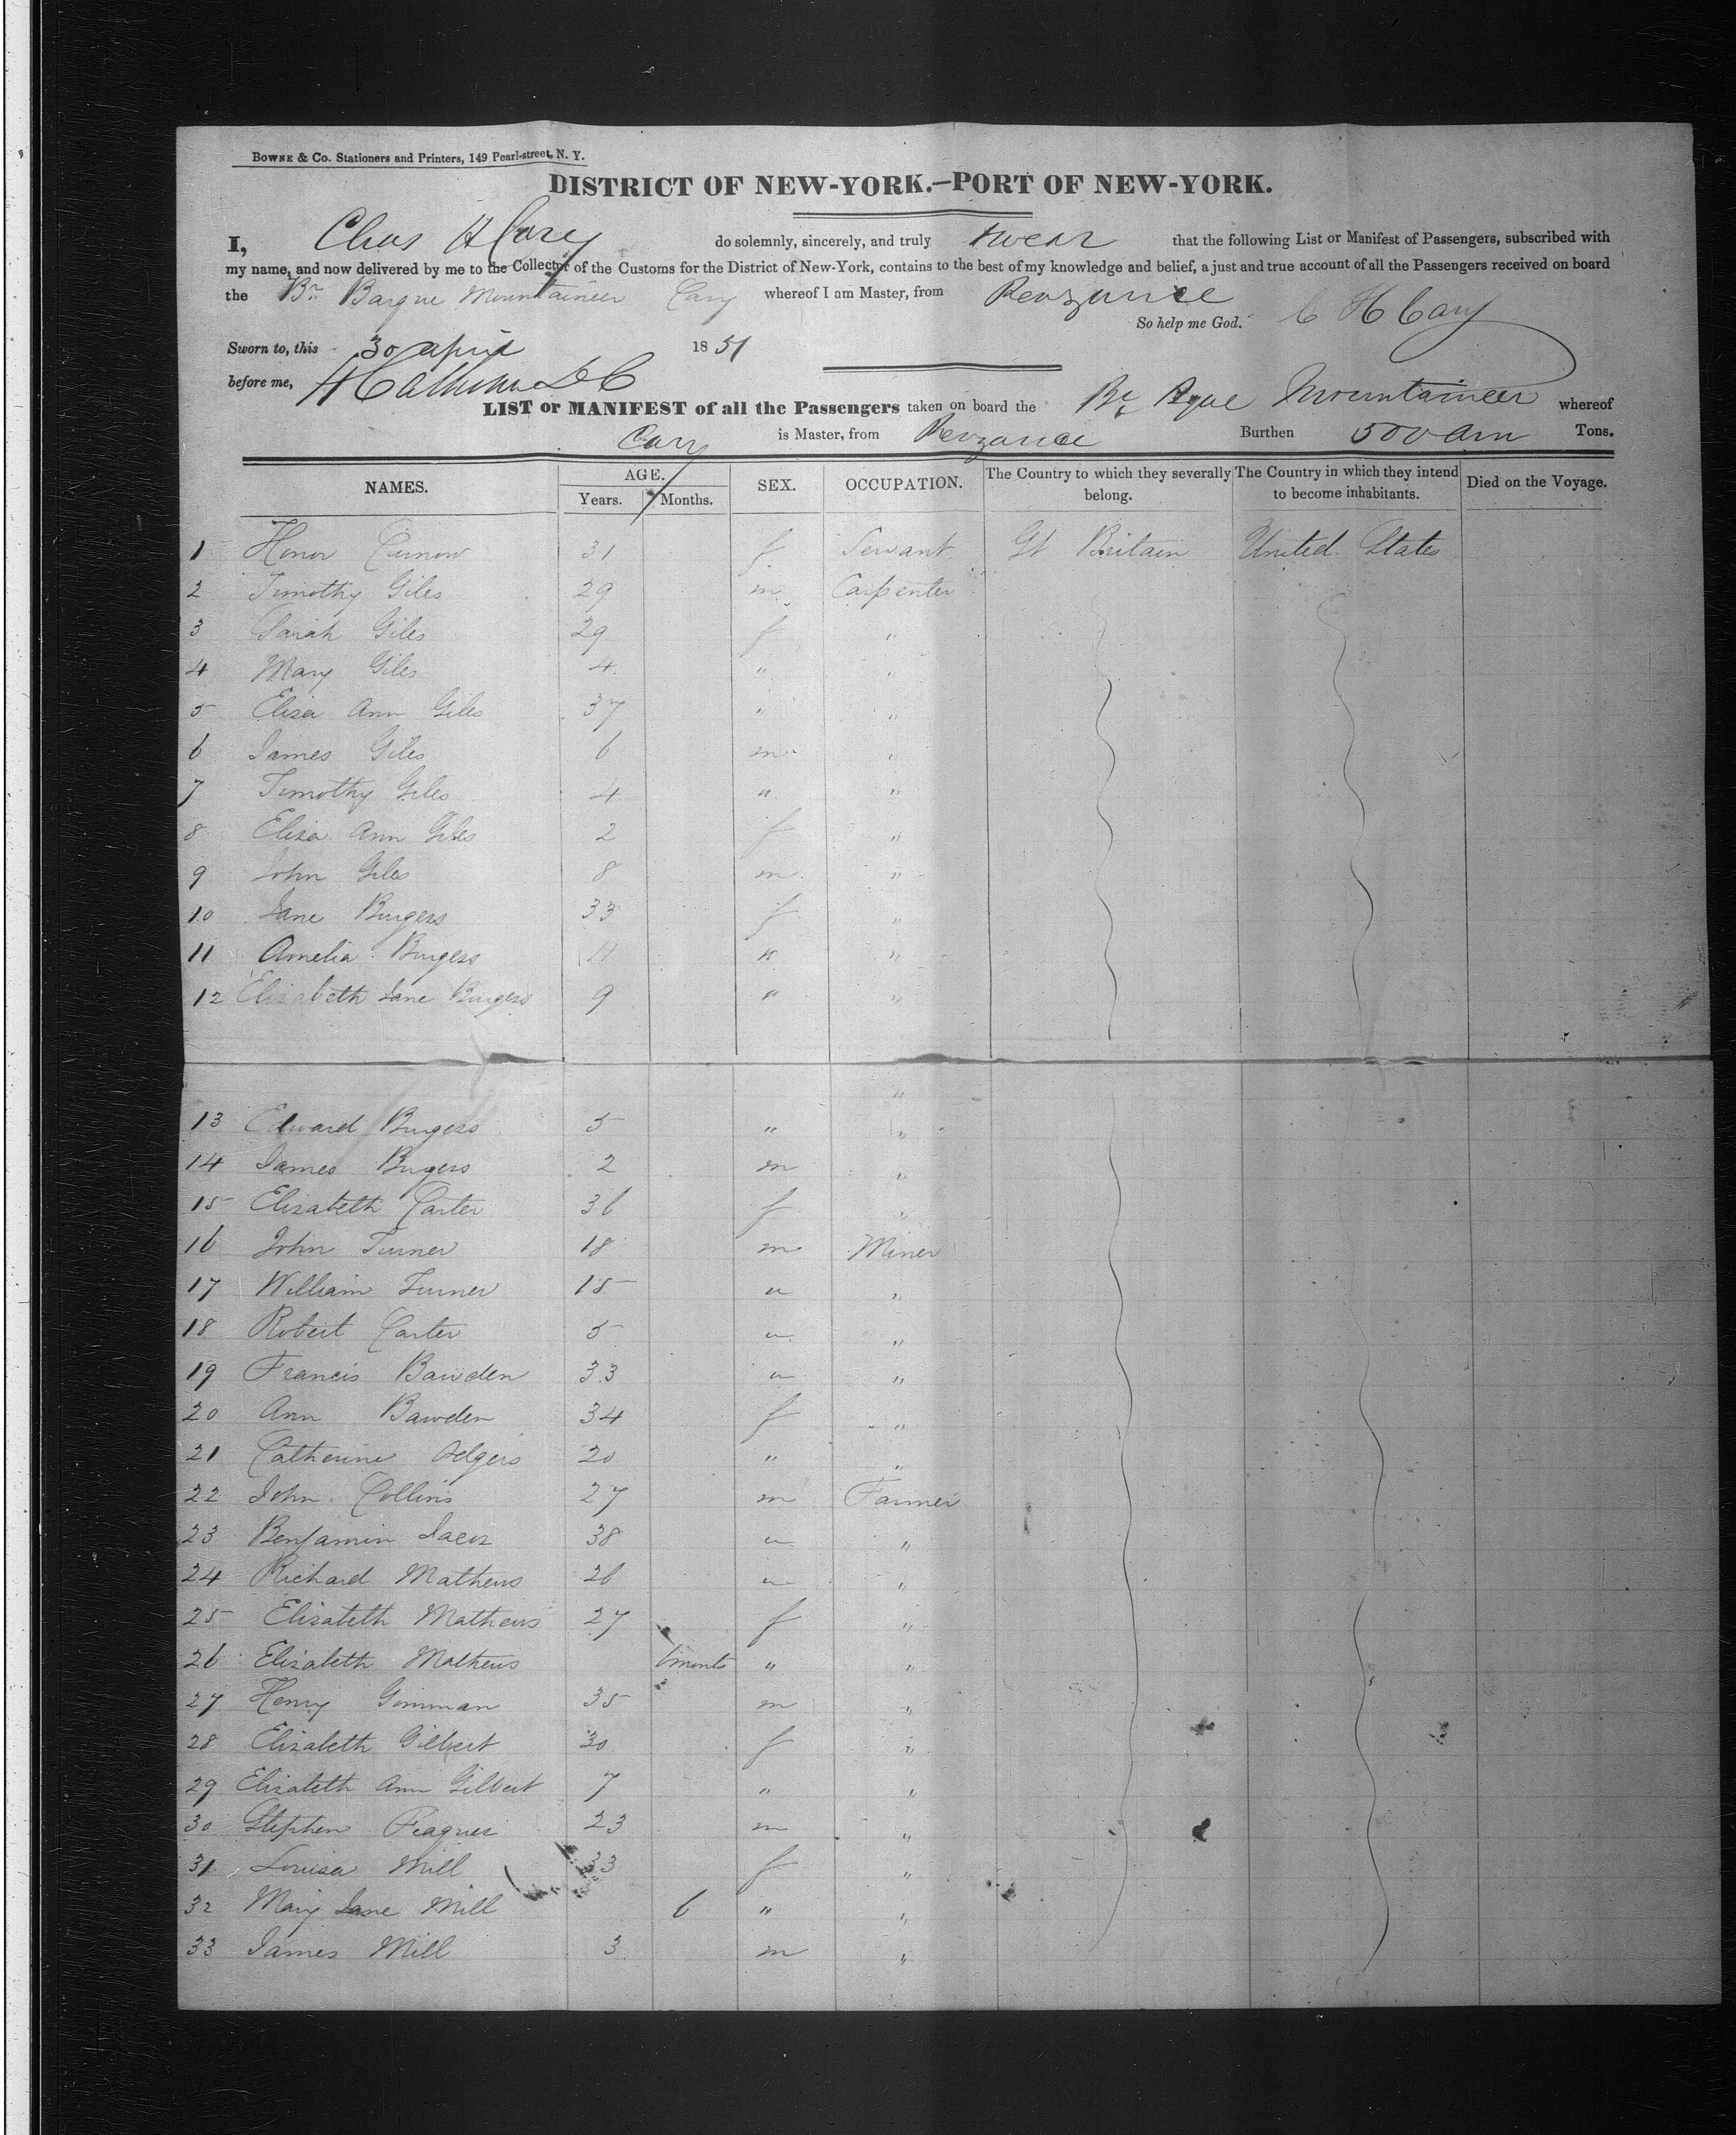 BOWNE & Co. Stationers and Printers, 149 Pearl-street, N. Y.
DISTRICT OF NEW-YORK.—PORT OF NEW-YORK.
I, Chas H Cary do solemnly, sincerely, and truly swear that the following List or Manifest of Passengers, subscribed with
my name, and now delivered by me to the Collector of the Customs for the District of New-York, contains to the best of my knowledge and belief, a just and true account of all the Passengers received on board
the Br Barque Mountaineer Cary whereof I am Master, from Penzance
So help me God. C H Cary
Sworn to, this 30 April 1851
before me, D C
LIST or MANIFEST of all the Passengers taken on board the Br Bque Mountaineer whereof
Cary is Master, from Penzance Burthen 500 Tons.
NAMES. AGE. Years. Months. SEX. OCCUPATION. The Country to which they severally belong. The Country in which they intend to become inhabitants. Died on the Voyage.
1 Honor Curnow 31 f Servant Gt Britain United States
2 Timothy Giles 29 m Carpenter
3 Sarah Giles 29 f "
4 Mary Giles 4 " "
5 Eliza Ann Giles 37 " "
6 James Giles 6 m "
7 Timothy Giles 4 " "
8 Eliza Ann Giles 2 f "
9 John Giles 8 m "
10 Jane Burgess 33 f "
11 Amelia Burgess 11 " "
12 Elizabeth Jane Burgess 9 " "
"
13 Edward Burgess 5 " "
14 James Burgess 2 m "
15 Elizabeth Carter 36 f "
16 John Turner 18 m Miner
17 William Turner 15 " "
18 Robert Carter 5 " "
19 Francis Bawden 33 " "
20 Ann Bawden 34 f "
21 Catherine 20 " "
22 John Collins 27 m Farmer
23 Benjamin 38 " "
24 Richard Mathews 26 " "
25 Elizabeth Mathews 27 f "
26 Elizabeth Mathews 6 monts " "
27 Henry 35 m "
28 Elizabeth Gilbert 30 f "
29 Elizabeth Ann Gilbert 7 " "
30 Stephen 23 m "
31 Louisa Mill 33 f "
32 Mary Jane Mill 6 " "
33 James Mill 3 m "